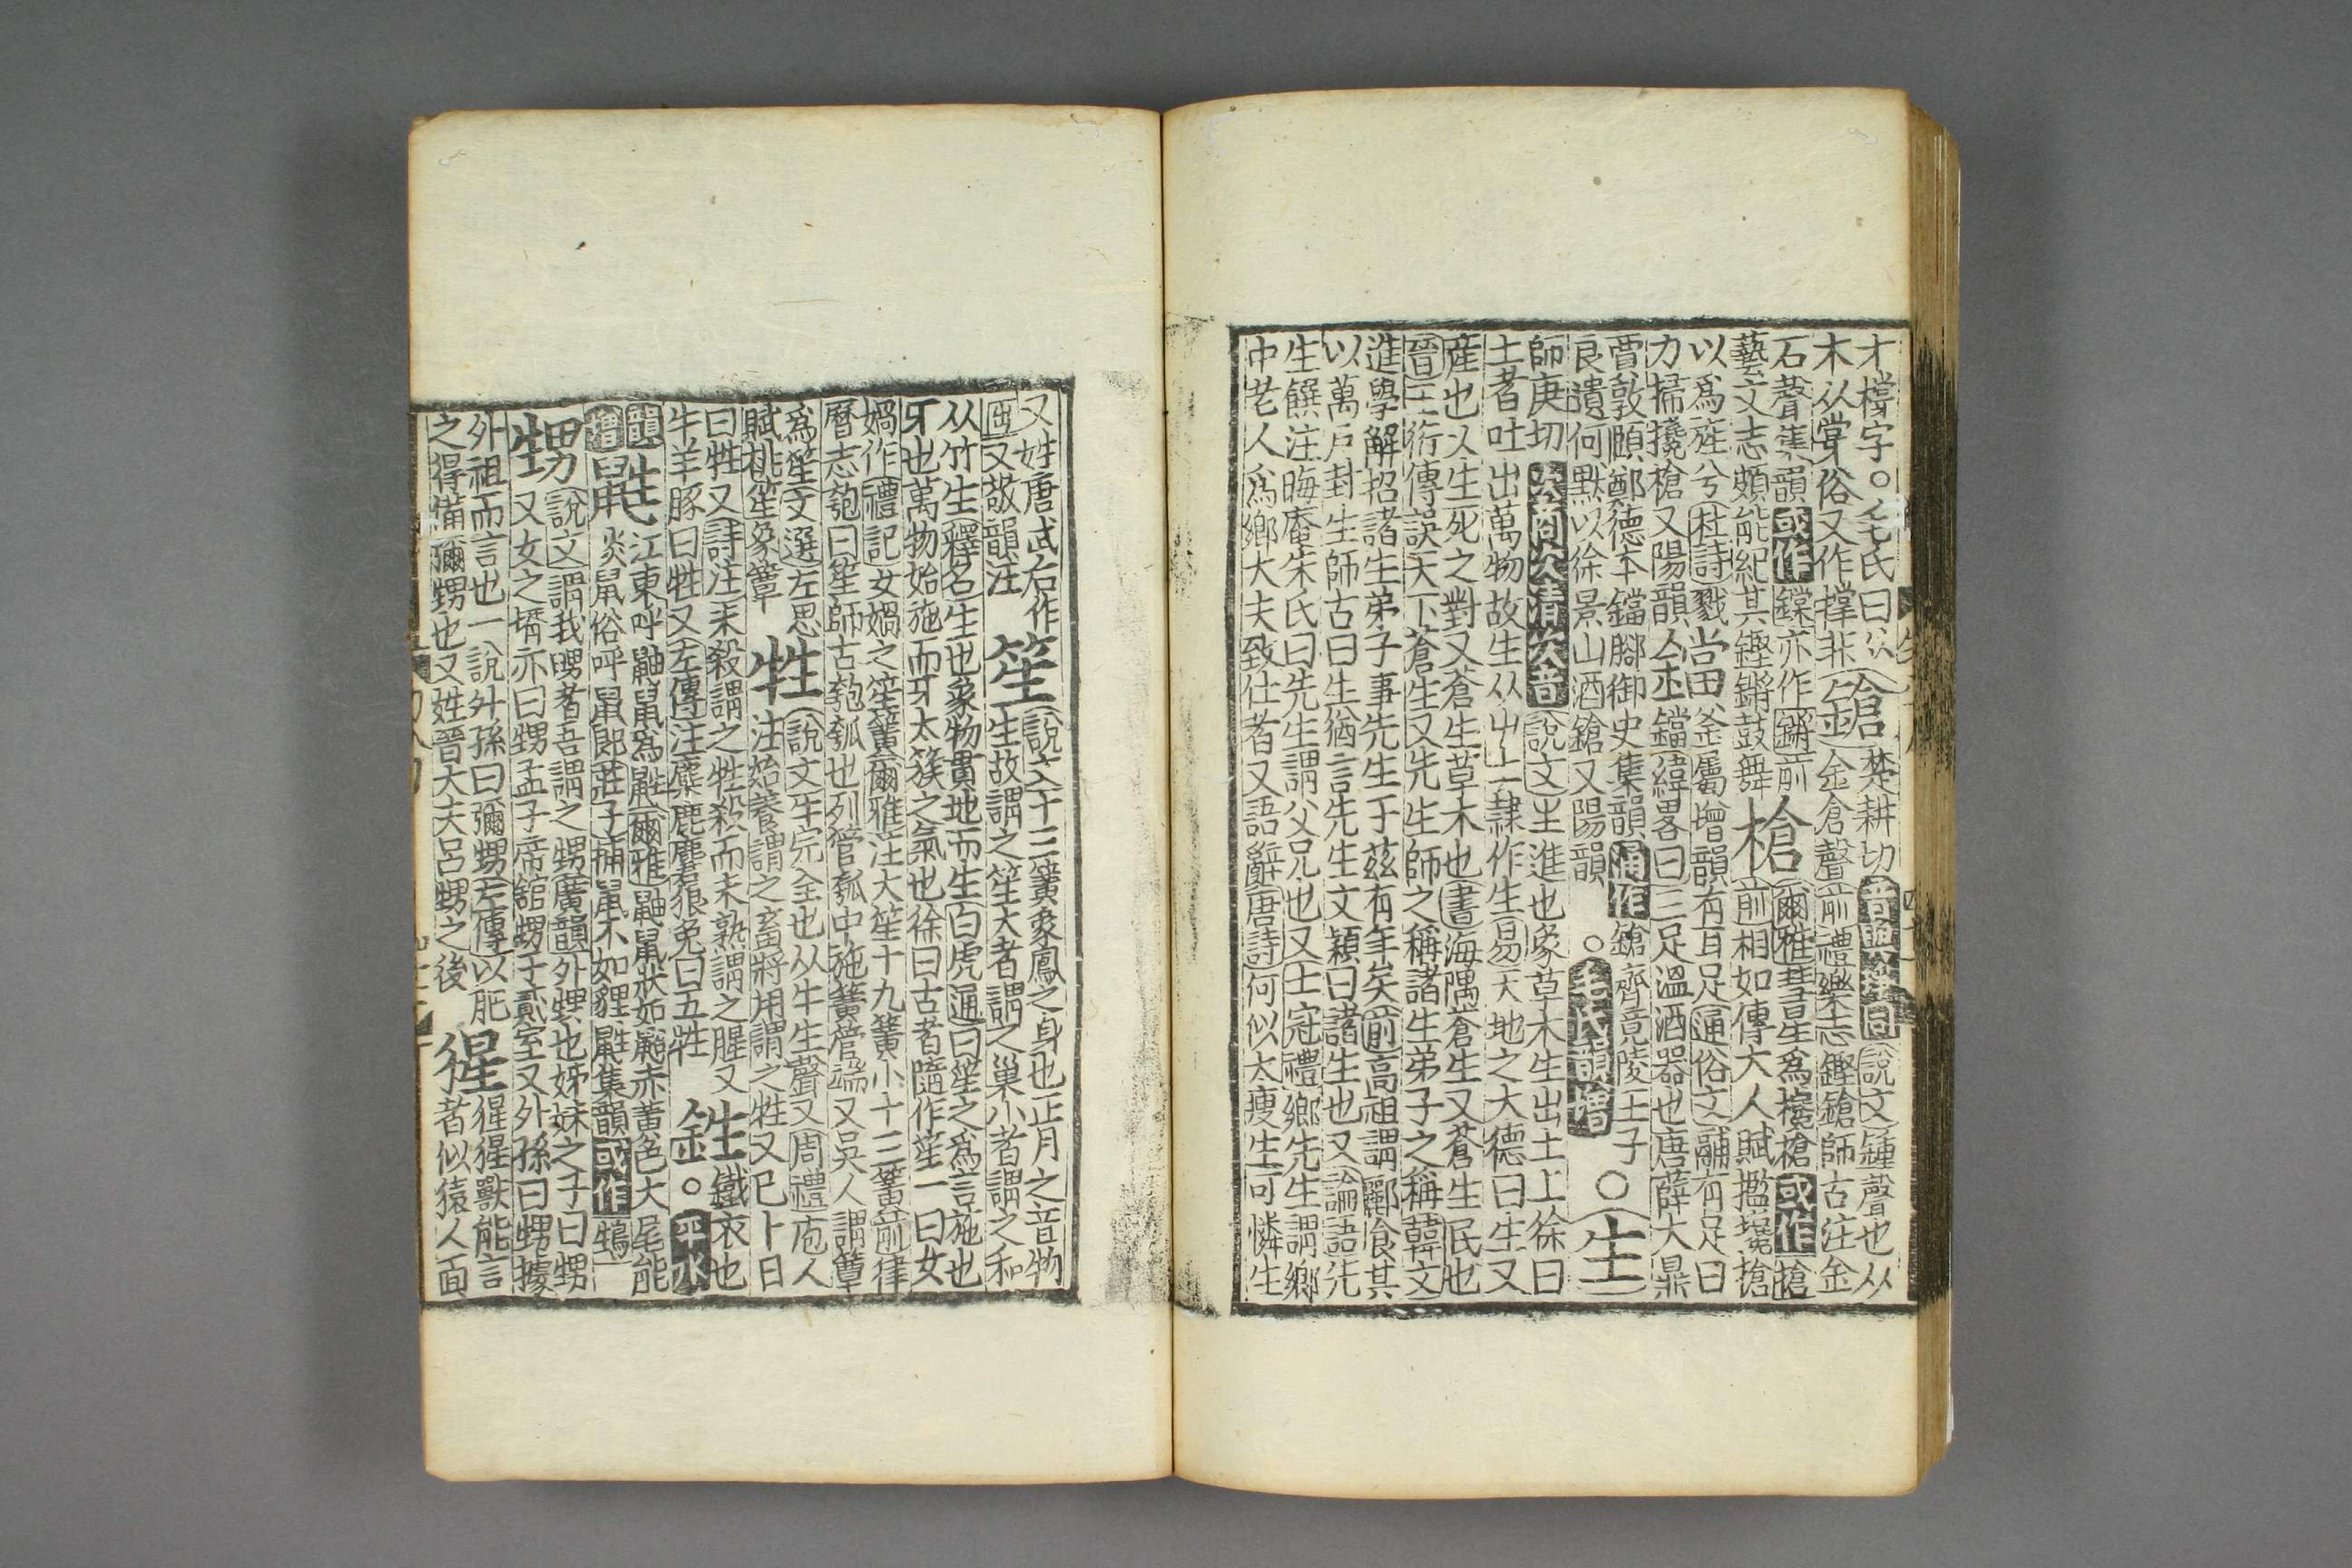 才樘字○毛氏曰從
木从掌俗又作撑非
鎗
楚耕切音與琤同說文鍾聲也从
金倉聲前禮樂志鏗鎗師古注金
石聲集韻或作鏿亦作鏘前
藝文志頗能紀其鏗鏘鼓舞
槍
爾雅彗星爲欃槍或作搶
前相如傳大人賦攬欃搶
以爲旌兮杜詩戮
力掃攙槍又陽韻
鐺
釜屬增韻有耳足通俗文鬴有足曰
鐺緯畧曰三足溫酒器也唐薛大鼎
賈敦頤鄭德本鐺脚御史集韻通作鎗齊竟陵王子
良遺何點以徐景山酒鎗又陽韻○毛氏韻增
○生
師庚切次商次清次音說文生進也象草木生出土上徐曰
土者吐出萬物故生从屮土隷作生易天地之大德曰生又
産也又生死之對又蒼生草木也書海隅蒼生又蒼生民也
晉王衍傳誤天下蒼生又先生師之稱諸生弟子之稱韓文
進學解招諸生弟子事先生于茲有年矣前高祖謂酈食其
以萬戶封生師古曰生猶言先生文穎曰諸生也又論語先
生饌注晦庵朱氏曰先生謂父兄也又士冠禮鄉先生謂鄉
中老人爲鄉大夫致仕者又語辭唐詩何似太瘦生可憐生
又姓唐武后作
𠤱又敬韻注
笙
說文十三簧象鳳之身也正月之音物
生故謂之笙大者謂之巢小者謂之和
从竹生釋名生也象物貫地而生白虎通曰笙之爲言施也
牙也萬物始施而牙太蔟之氣也徐曰古者隨作笙一曰女
媧作禮記女媧之笙簧爾雅注大笙十九簧小十三簧前律
曆志匏曰笙師古匏瓠也列管瓠中施簧管端又吳人謂簟
爲笙文選左思
賦桃笙象簟
牲
說文牛完全也从牛生聲又周禮庖人
注始養謂之畜將用謂之牲又巳卜日
曰牲又詩注未殺謂之牲殺而未熟謂之腥又
牛羊豚曰牲又左傳注麋鹿麏狼兔曰五牲
鉎
鐵衣也
○平水
韻
增
鼪
江東呼鼬鼠爲鼪爾雅鼬鼠狀如鼦赤黃色大尾能
炎鼠俗呼鼠郎莊子捕鼠不如貍鼪集韻或作䳲
甥
說文謂我舅者吾謂之甥廣韻外甥也姊妹之子曰甥
又女之壻亦曰甥孟子帝舘甥于貳室又外孫曰甥據
外祖而言也一說外孫曰彌甥左傳以肥
之得備彌甥也又姓晉大夫呂甥之後
猩
猩猩獸能言
者似猿人面